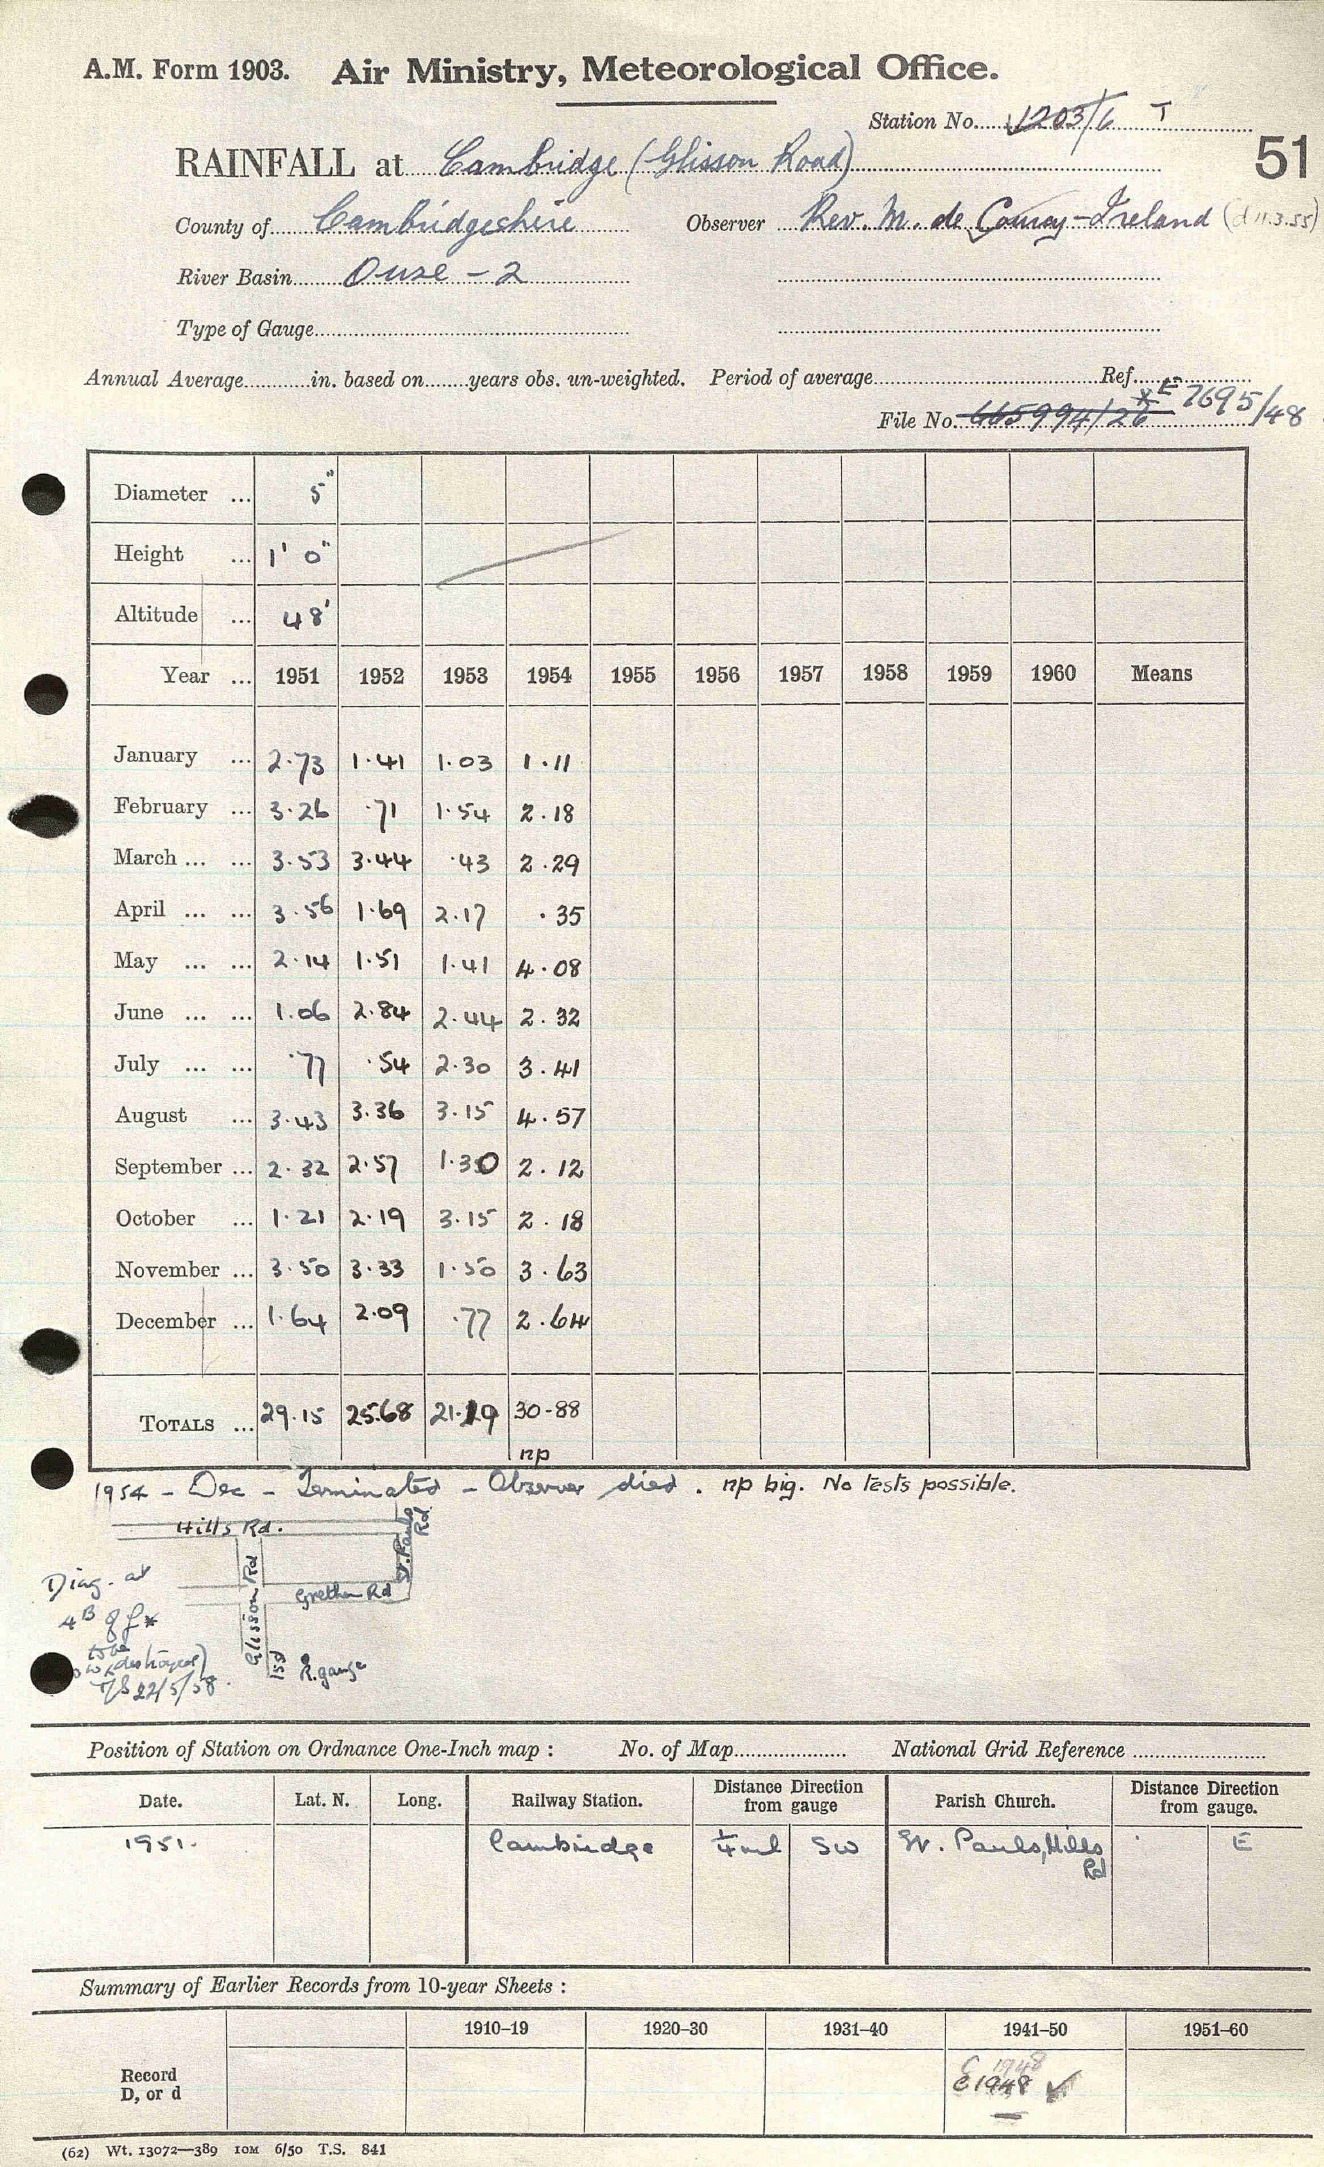 A.M. Form 1903. Air Ministry, Meteorological Office.
Station No. 1203/6 T
51
RAINFALL at Cambridge (Glisson Road)
County of Cambridgeshire Observer Rev. M. de Courcy-Ireland (d 11.3.55)
River Basin Ouse - 2
Type of Gauge
Annual Average in. based on years obs. un-weighted. Period of average Ref.
File No. 665994/26 * E 7695/48
Diameter ... 5"
Height ... 1' 0"
Altitude ... 48'
Year ... 1951 1952 1953 1954 1955 1956 1957 1958 1959 1960 Means
January ... 2.73 1.41 1.03 1.11
February ... 3.26 .71 1.54 2.18
March ... ... 3.53 3.44 .43 2.29
April ... ... 3.56 1.69 2.17 .35
May ... ... 2.14 1.51 1.41 4.08
June ... ... 1.06 2.84 2.44 2.32
July ... ... .77 .54 2.30 3.41
August ... 3.43 3.36 3.15 4.57
September ... 2.32 2.57 1.30 2.12
October ... 1.21 2.19 3.15 2.18
November ... 3.50 3.33 1.50 3.63
December ... 1.64 2.09 .77 2.64
TOTALS ... 29.15 25.68 21.19 30-88
np
1954 - Dec - Terminated - Observer died. np big. No tests possible.
Hills Rd.
St. Pauls Rd.
Glisson Rd
Grethen Rd
Diag. at
4B of f *
to be
destroyed)
22/5/58.
R. gauge
Position of Station on Ordnance One-Inch map : No. of Map National Grid Reference
Date. Lat. N. Long. Railway Station. Distance Direction from gauge Parish Church. Distance Direction from gauge.
1951. Cambridge 1/4 ml SW St. Pauls, Hills Rd E
Summary of Earlier Records from 10-year Sheets :
1910–19 1920–30 1931–40 1941–50 1951–60
Record
D, or d
C 1948
C 1948 ✓
(62) Wt. 13072—389 10M 6/50 T.S. 841